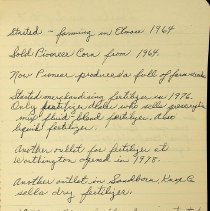 Started - farming in Elnora 1964
Sold Pioneer Corn from 1964.
Now Pioneer produces a full of farm seeds
Started merchandising fertilizer in 1976.
Only fertilizer dealer who sells
mix fluid blend fertilizer. Also
liquid fertilizer.
Another outlet for fertilizer at
Worthington opened in 1978.
Another outlet in Sandborn, Knox Co
sells dry fertilizer.